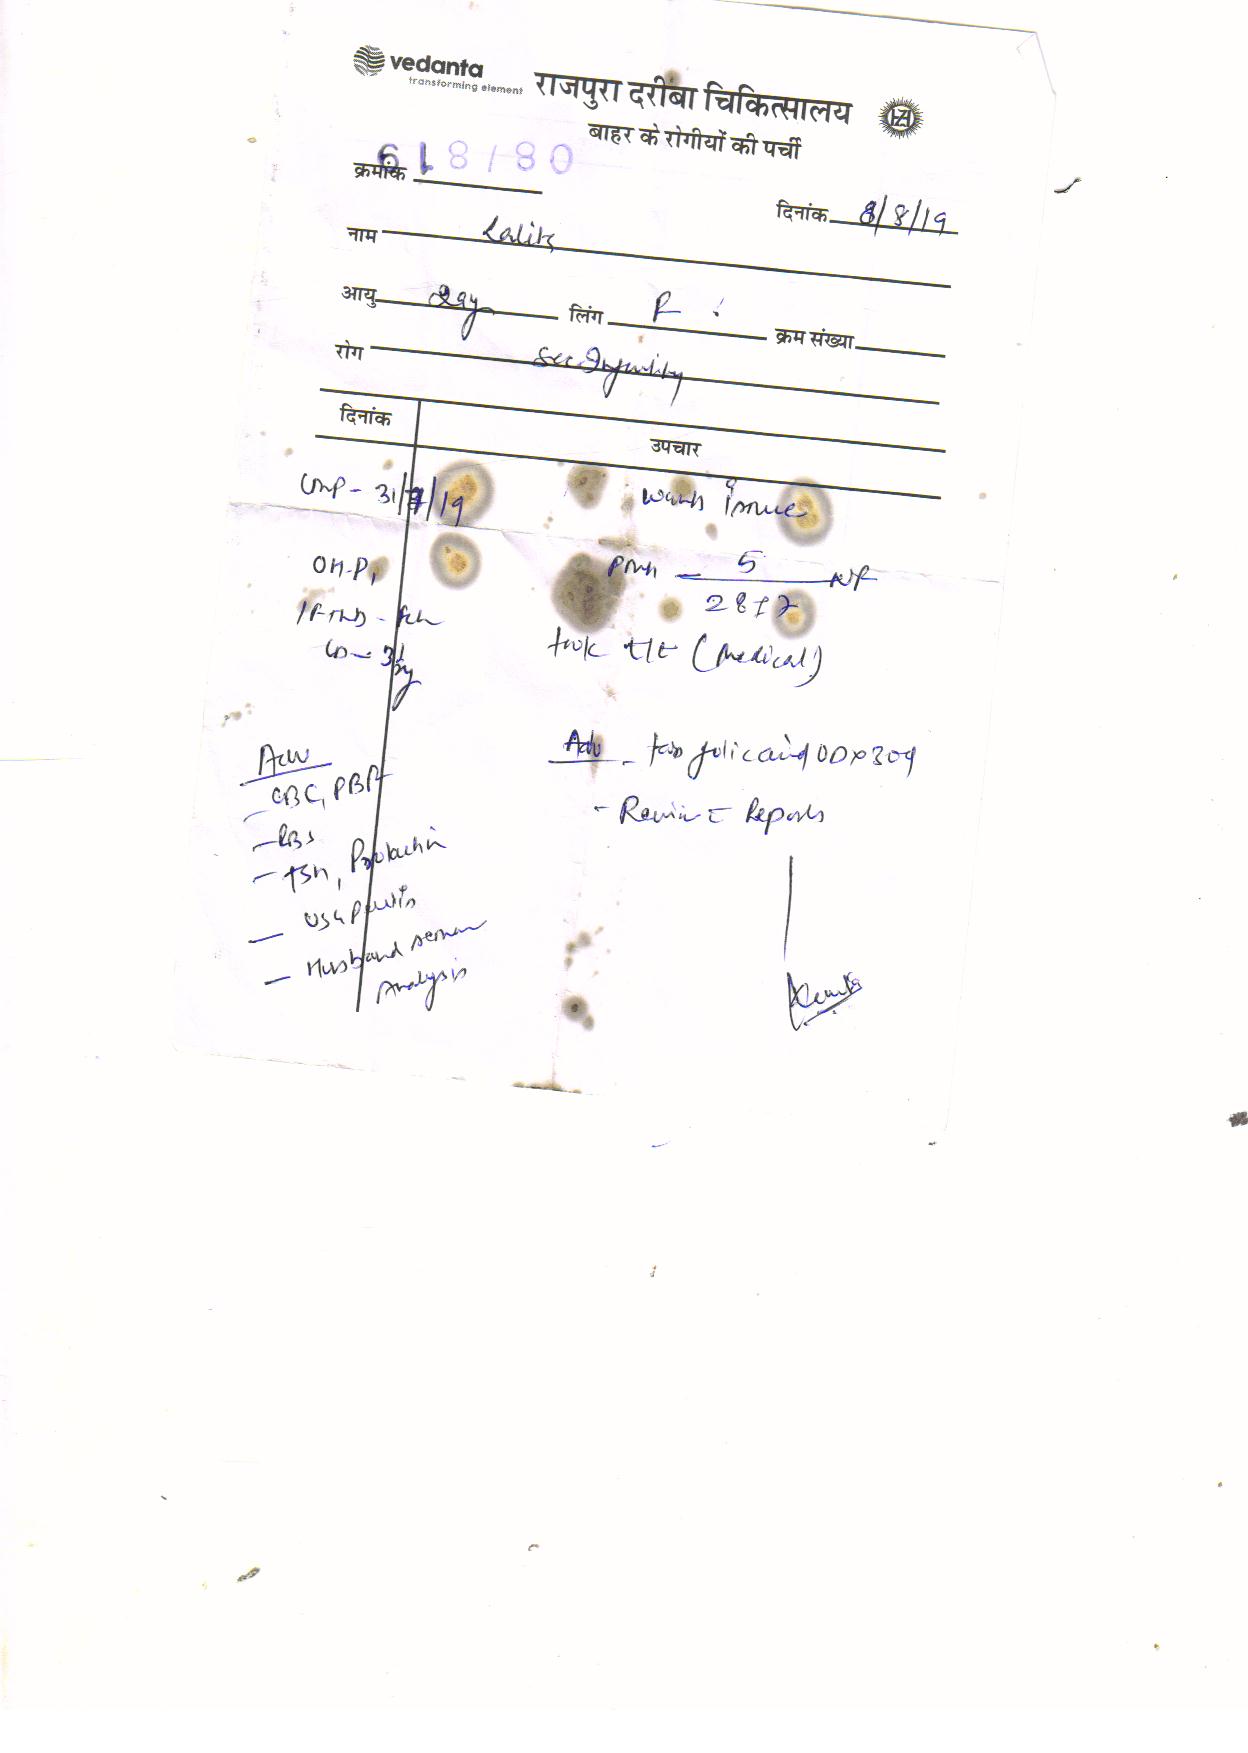 vedanta
transforming element
राजपुरा दरीबा चिकित्सालय
बाहर के रोगीयों की पर्ची
क्रमांक
दिनांक 8/8/19
नाम Lalita
आयु लिंग F क्रम संख्या
रोग Sec Infertility
दिनांक उपचार
LMP - 31/7/19 wants issue
OH-P1 PMH - 5/28±2 NF
1 FTND - 
LD - 3½y took t/t (Medical)
Adv Adv - Tab folic acid OD x 30d
- CBC, PBF - Review c Reports
- RBS
- TSH, Prolactin
- USG Pelvis
- Husband semen
Analysis